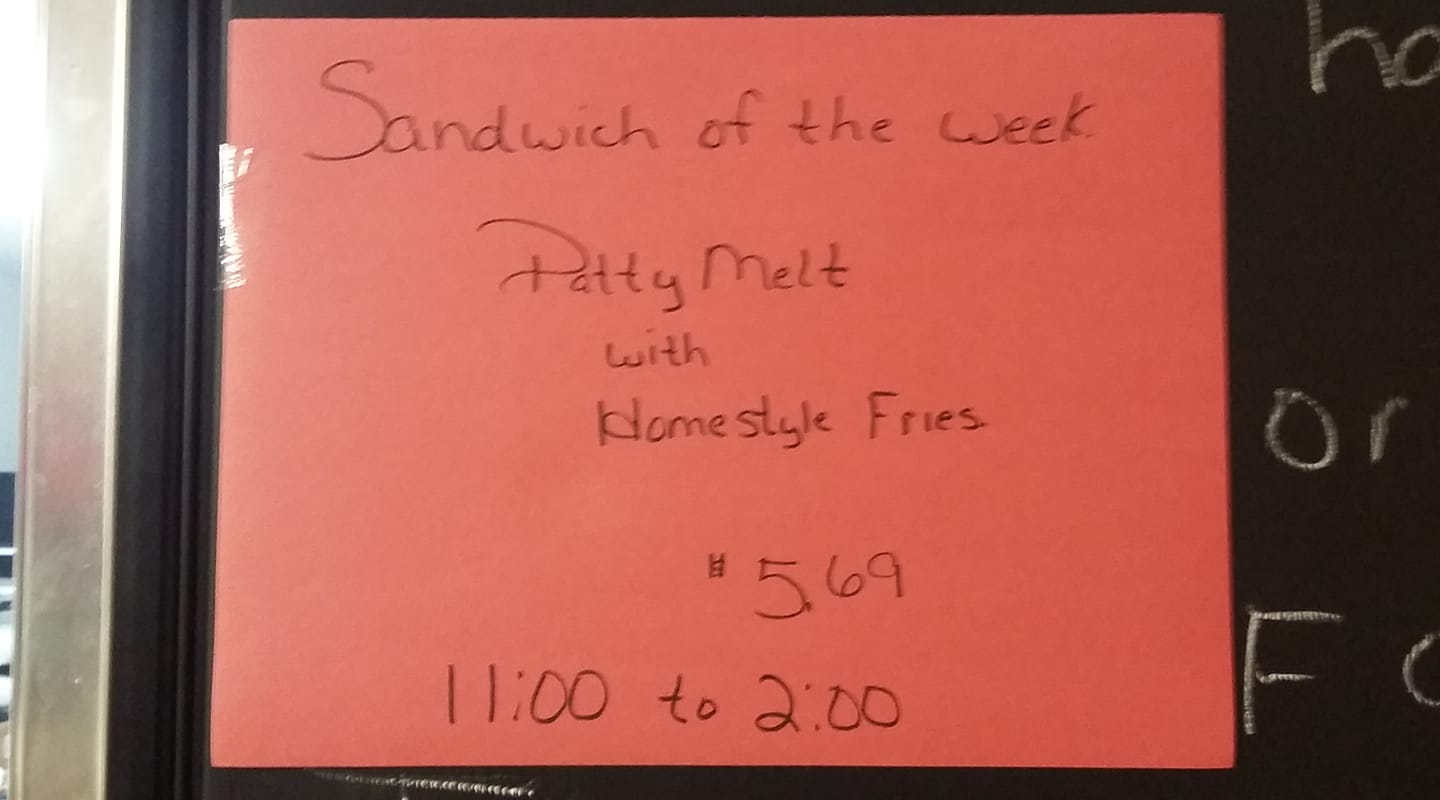 Sandwich of the week.
Patty Melt
with
Homestyle Fries.
$5.69
11:00 to 2:00
ho
or
F